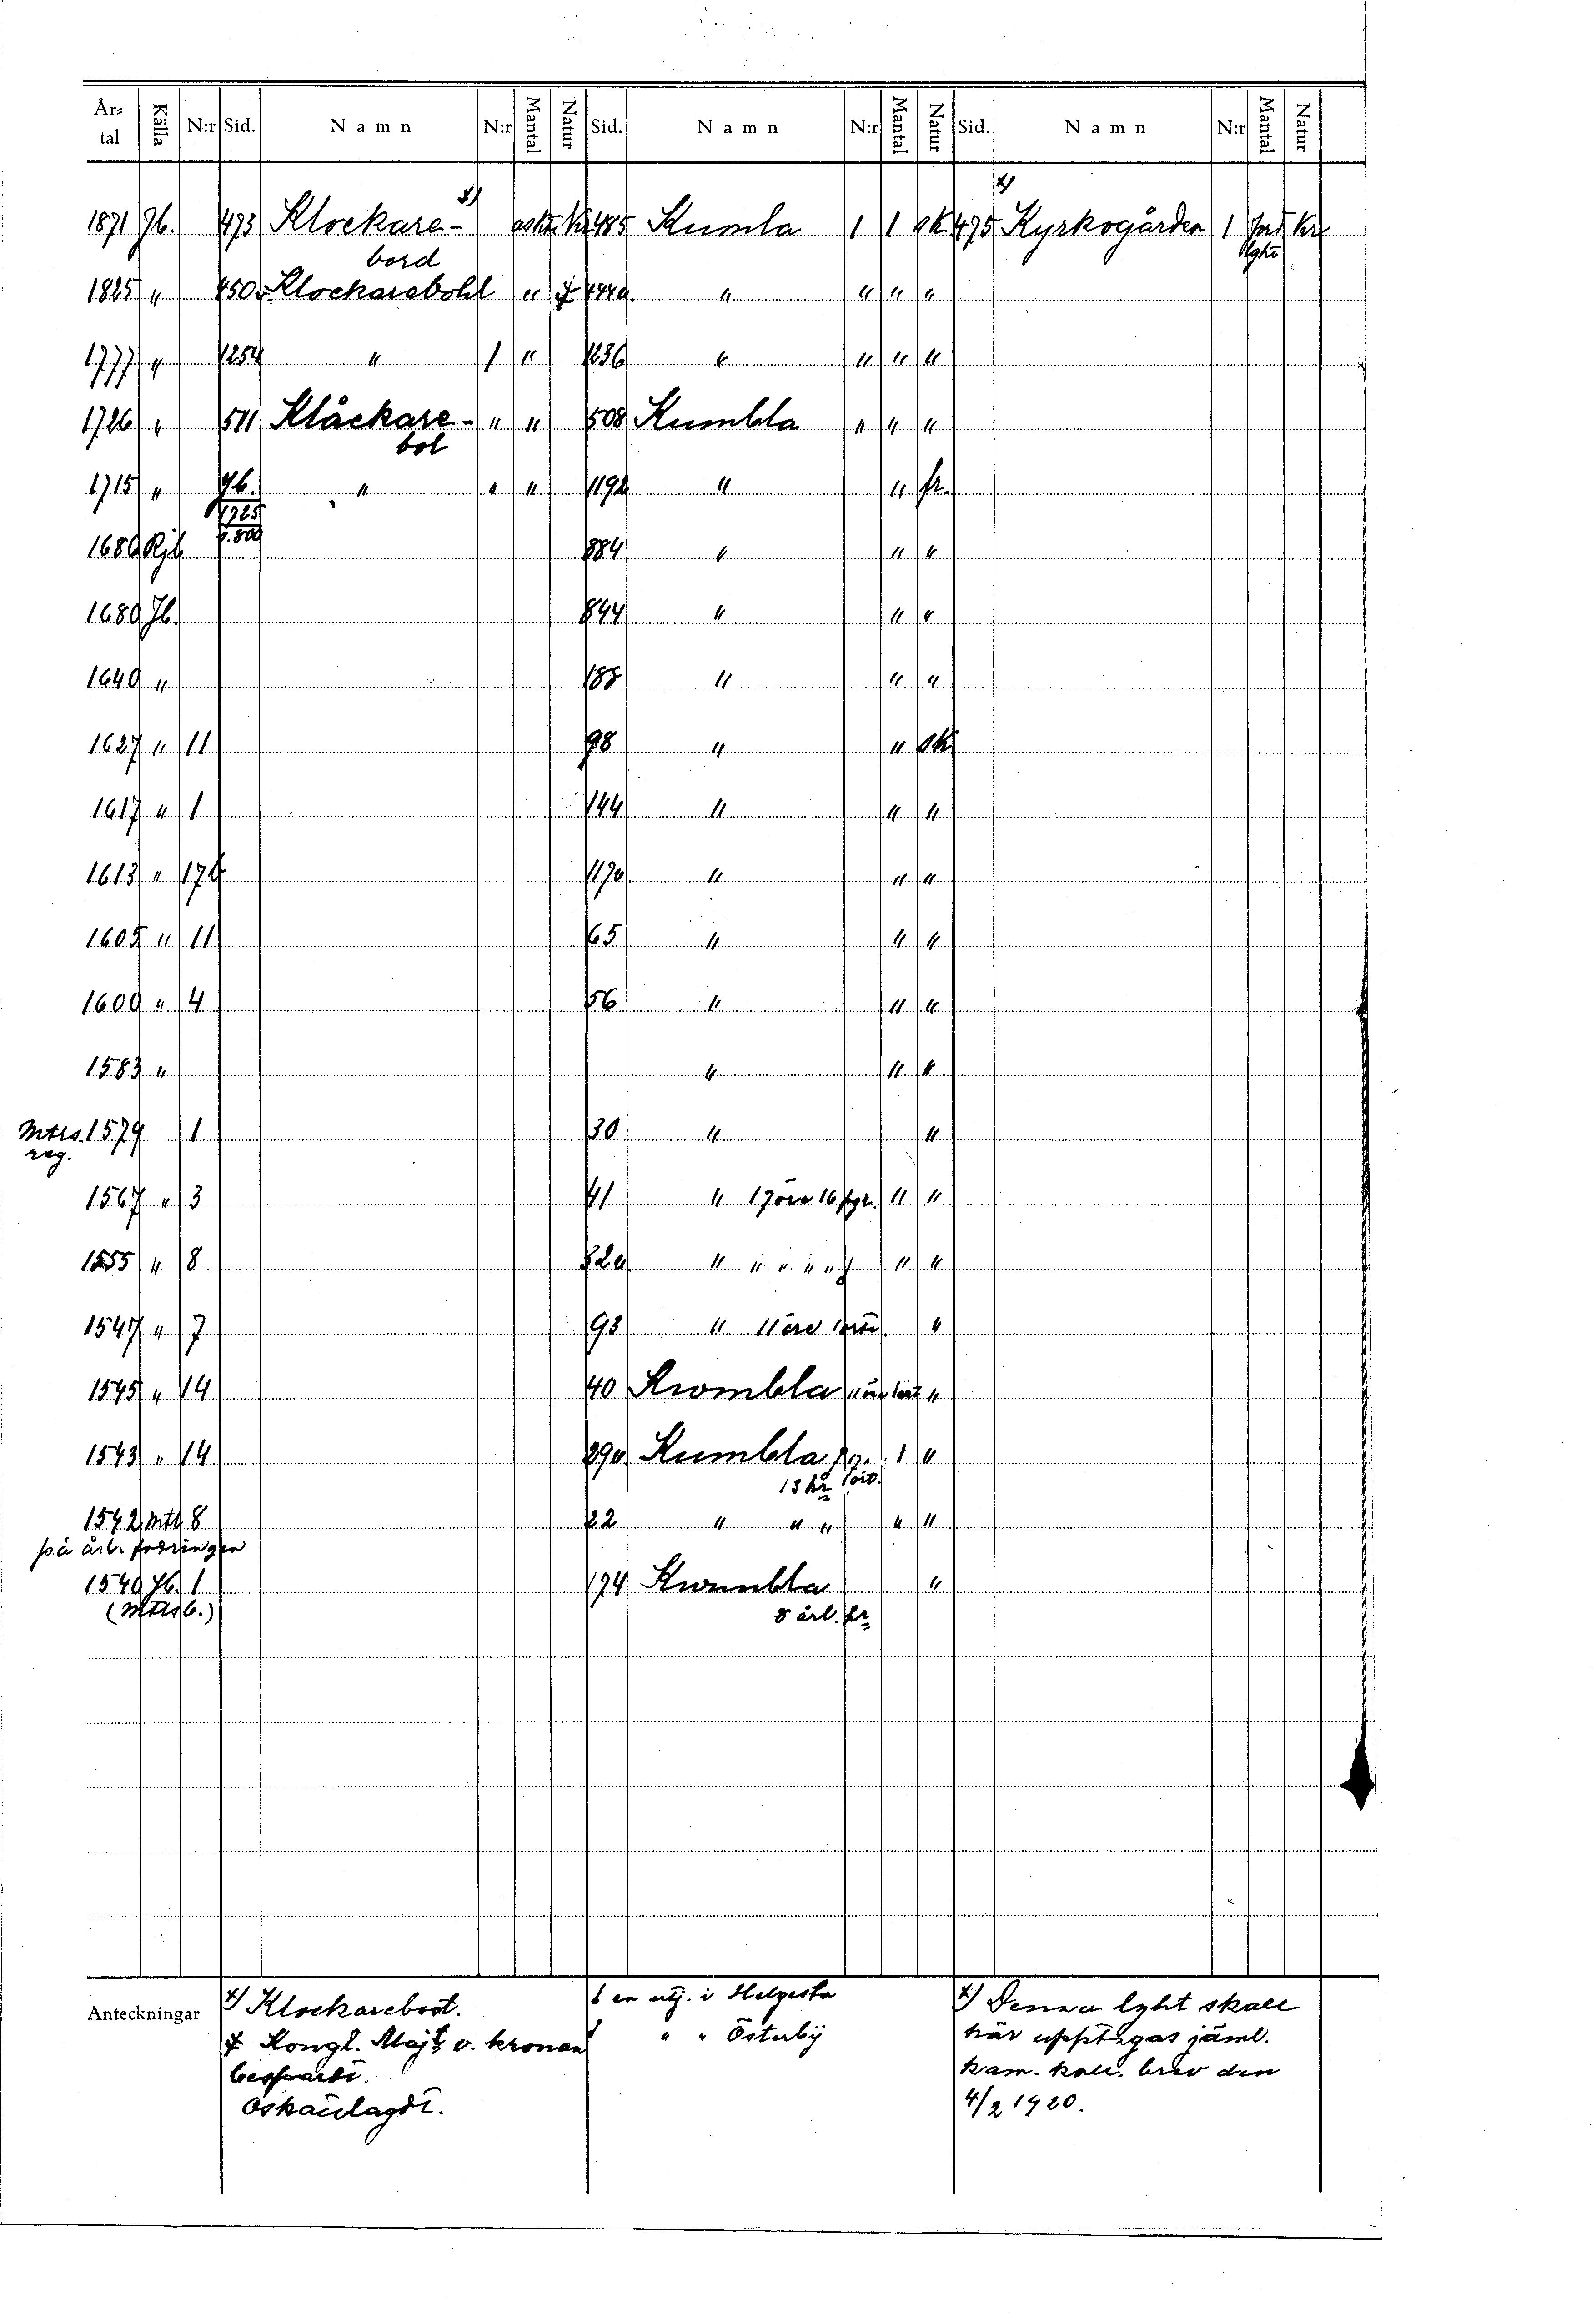 År-tal Källa N:r Sid. Namn N:r Mantal Natur Sid. Namn N:r Mantal Natur Sid. Namn N:r Mantal Natur
1871 Jb. 473 Klockare- x) 485 Kumla 1 1 sk 475 x) Kyrkogården 1 Kr
bord lght
1825 " 450 Klockarebohl " " " " "
1777 " 1254 " 1 " 1236 " " " "
1726 " 511 Klåckare- " " 508 Kumbla " " "
bol
1715 " Jb. " " " 1192 " " fr.
1725
1686 Rjb 884 " " "
1680 Jb. 844 " " "
1640 " 188 " " "
1627 " 11 98 " " sk
1617 " 1 144 " " "
1613 " 176 " " "
1605 " 11 65 " " "
1600 " 4 56 " " "
1583 " " " "
Mtls. 1579 1 30 " "
reg.
1567 " 3 41 " 17 öre 16 pgr. " "
1555 " 8 " " " " " " "
1547 " 7 93 " 11 öre "
1545 " 14 40 Kwmbla "
1543 " 14 Kumbla 1 "
13 hr
1542 Mtl 8 22 " " " " "
på årl.
1540 Jb. 1 174 Kwmbla "
(Mtlsb.) 8 årl. hr
Anteckningar
x) Klockarebost.
Kongl. Maj:t o. kronan
Oskattlagdt.
1 en utj. i Helgesta
1 " " Österby
x) Denna lght skall
här upptagas jäml.
kam. koll. brev den
4/2 1920.